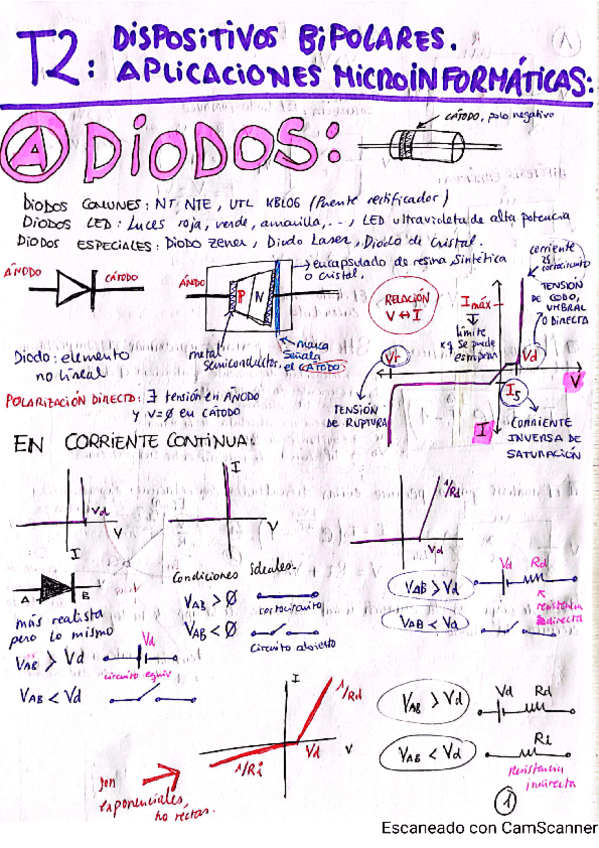 T2: DISPOSITIVOS BIPOLARES.
APLICACIONES MICROINFORMÁTICAS:
A DIODOS:
CÁTODO, polo negativo
DIODOS COMUNES: NT, NTE, UTL KBLOG (Puente rectificador)
DIODOS LED: Luces roja, verde, amarilla, ..., LED ultravioleta de alta potencia
DIODOS ESPECIALES: Diodo zener, Diodo Laser, Diodo de Cristal.
ÁNODO
CÁTODO
ÁNODO
P N
encapsulado de resina sintética
o cristal.
metal
Semiconductor.
marca
señala
el CÁTODO
Diodo: elemento
no lineal
POLARIZACIÓN DIRECTA: ∃ tensión en ÁNODO
y V=∅ en CÁTODO
RELACIÓN
V ↔ I
Imáx
límite
x q se puede
estropear
corriente
es
cortocircuito
TENSIÓN
DE CODO,
UMBRAL
O DIRECTA
Vr
Vd
V
Is
I
TENSIÓN
DE RUPTURA
CORRIENTE
INVERSA DE
SATURACIÓN
EN CORRIENTE CONTINUA:
Vd
V
I
I
V
1/Rd
Vd
A B
más realista
pero lo mismo
VAB > Vd
Vd
circuito equiv
VAB < Vd
Condiciones ideales:
VAB > ∅
cortocircuito
VAB < ∅
circuito abierto
VAB > Vd
Vd Rd
resistencia
directa
VAB < Vd
I
1/Rd
Vd
V
1/Ri
Son
exponenciales,
no rectas.
VAB > Vd
Vd Rd
VAB < Vd
Ri
Resistencia
indirecta
1
Escaneado con CamScanner